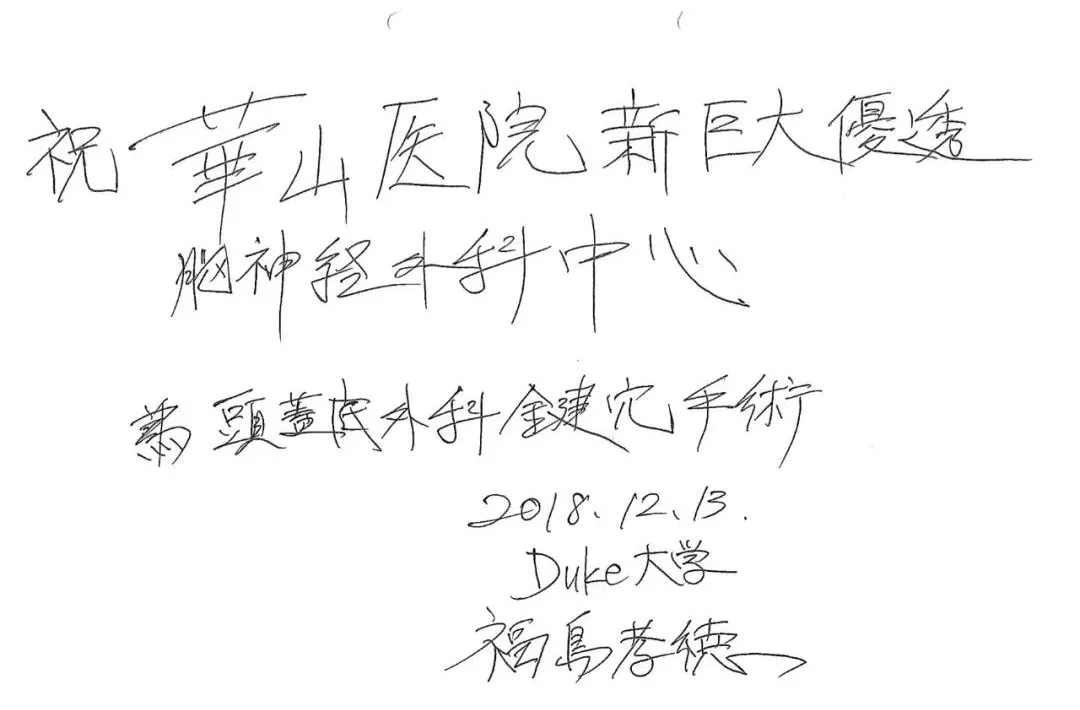 祝 華山医院 新巨大優透
脳神経外科中心
為 頭蓋底外科 鍵穴手術
2018.12.13.
Duke大学
福島孝徳